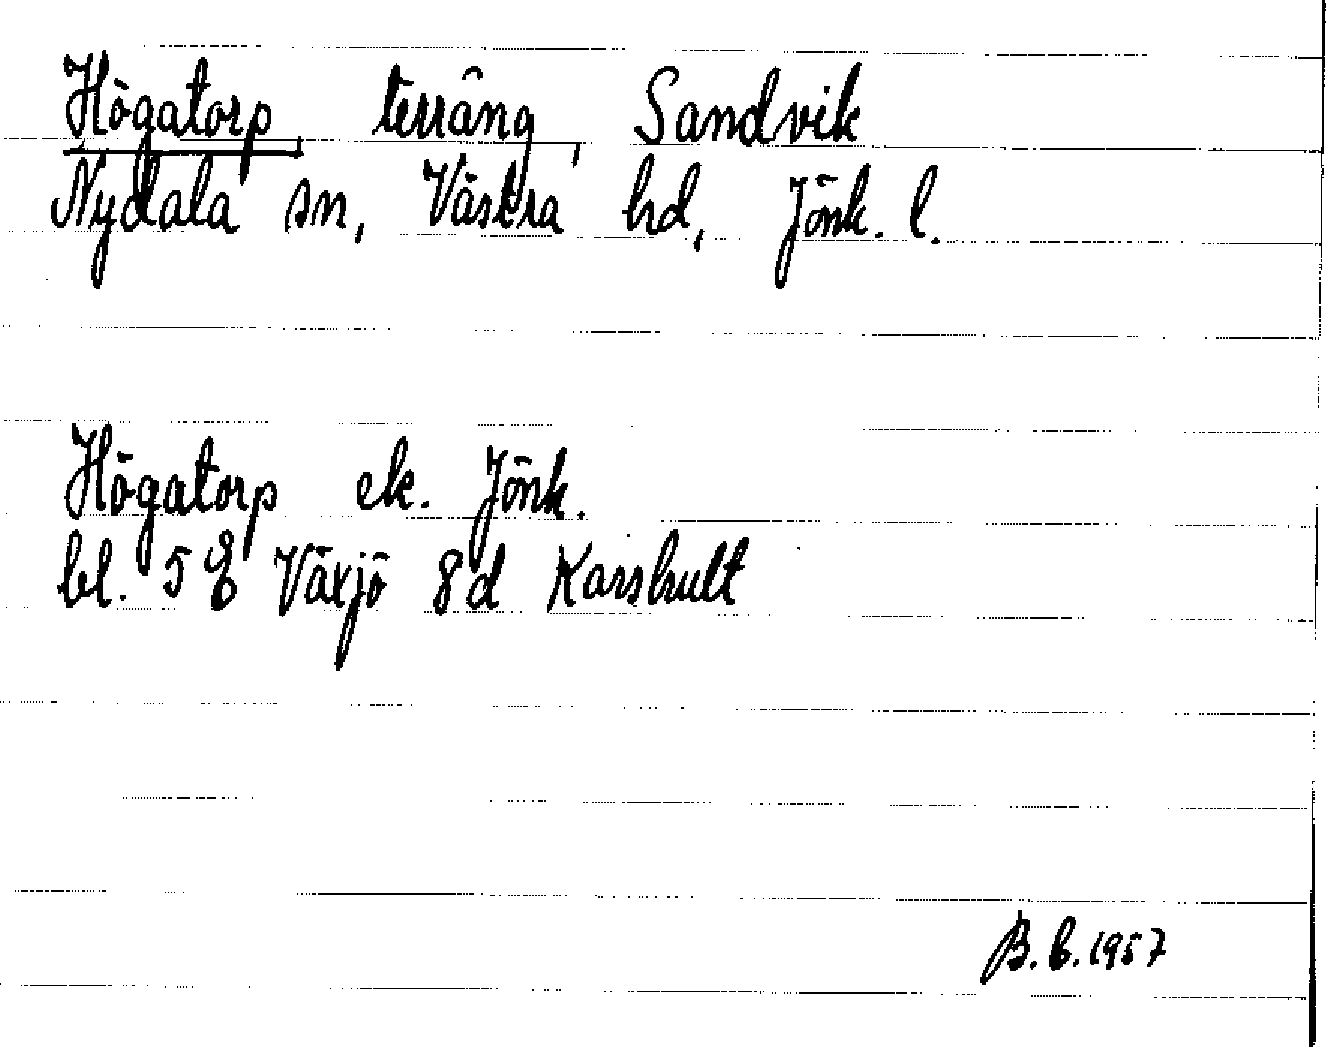 Högatorp, terräng, Sandvik
Nydala sn, Västra hd, Jönk. l.
Högatorp ek. Jönk.
bl. 5 E Växjö 8d Karshult
B.C. 1957